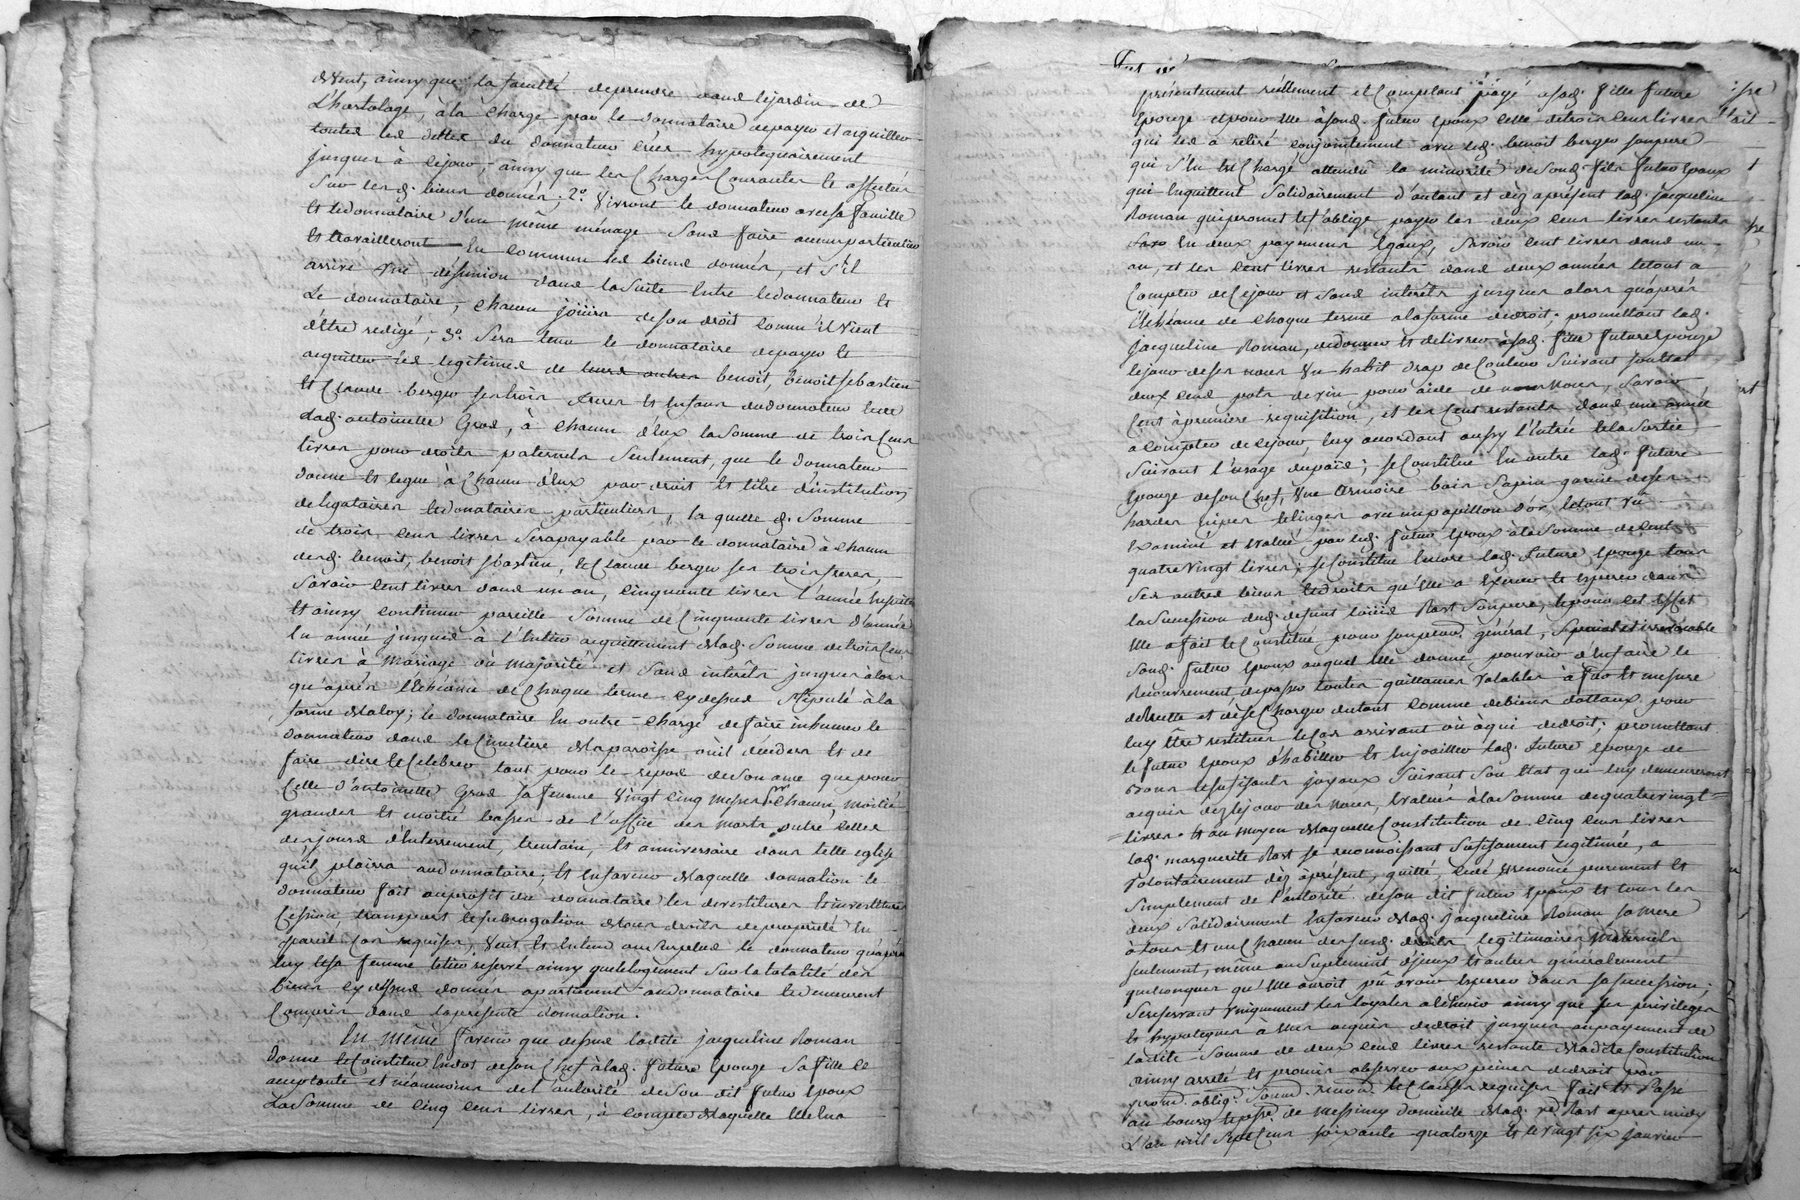 ainsy que la faculté de prendre dans le jardin de
L'hortolage, à la charge par le donnataire de payer et acquitter
toutes les dettes du donnateur créés hypotequairement
jusques à ce jour, ainsy que les charges courantes et affectées
sur lesd. biens donnés; 2.° Vivront le donnateur avec sa famille
et le donnataire d'un même ménage sans faire aucun particulier
et travailleront en commun les biens donnés, et s'il
arrive une désunion dans la suite entre le donnateur et
le donnataire, chacun joüira de son droit comm'il vient
d'être redigé; 3.° sera tenu le donnataire de payer et
acquitter les legitimes de benoit, benoit sebastien
et Claude berger ses trois freres et enfans du donnateur et de
lad. antoinette Gras, à chacun d'eux la somme de trois cens
livres pour droits paternels seulement, que le donnateur
donne et legue à chacun d'eux par droit et titre d'institution
de ligataires et donataires particuliers, la quelle d. somme
de trois cens livres sera payable par le donnataire à chacun
desd. benoit, benoit sbastien, et Claude berger ses trois freres,
savoir cent livres dans un an, cinquante livres l'année ensuite
et ainsy continuer pareille somme de cinquante livres d'année
en année jusques à l'entier acquittement de lad. somme de trois cens
livres à mariage où majorité et sans interêts jusques alors
qu'après l'échéance de chaque terme cy dessus stipulé à la
forme de la loy; le donnataire en outre chargé de faire inhumer le
donnateur dans le cimetiere de la paroisse où il décédera et de
faire dire et celebrer tant pour le repos de son ame que pour
celle d'antoinette Gras sa femme vingt cinq messes chacun, moitié
grandes et moitié basses de l'office des morts outre celles
des jours d'enterrement, trentain, et anniversaire dans telle eglise
qu'il plaira au donnataire; et en faveur de laquelle donnation le
donnateur fait au profit du donnataire les devestitures et investitures
cession transport et subrogation de tous droits de propriété en
pareil cas requises, veut et entend au surplus le donnateur qu'aprés
luy et sa femme ainsy que le logement sur la totalité des
biens cy dessus donnés apartienne au donnataire et demeurent
compris dans la présente donnation.
En même faveur que dessus ladite jacqueline Roman
donne et constitue en dot de son chef à lad. future epouze sa fille ce
acceptante et néanmoins de l'autorité de son dit futur epoux
la somme de cinq cens livres, à compte de laquelle elle en a
présentement réellement et comptant payé à sad. fille future
epouze et pour elle à sond. futur epoux celle de trois cens livres
qui les a retiré conjointement avec led. benoit berger son pere
qui s'en est chargé attendu la minorité de sond. fils futur epoux
qui en quittent solidairement d'autant et dèz àprésent lad. jacqueline
Roman qui promet et s'oblige payer les deux cens livres restants
en deux payements egaux, savoir cent livres dans un
an, et les cent livres restants dans deux années le tout à
compter de ce jour et sans interêts jusques alors qu'aprés
l'échéance de chaque terme à la forme de droit; promettant lad.
jacqueline Roman, de donner et delivrer à sad. fille future epouze
le jour de ses noces un habit drap de couleur suivant son état
deux cens pots de vin pour aide de noces, savoir
cent à premiere requisition, et les cent restants dans une année
à compter de ce jour, luy accordant aussy l'entrée et la sortie
suivant l'usage du païs; se constitue en outre lad. future
epouze de son chef, une armoire bois sapin garnie de ses
hardes nipes et linges avec un papillon d'or le tout vû
examiné et evalué par led. futur epoux à la somme de cent
quatre vingt livres; se constitue encore lad. future epouze tous
ses autres biens et droits qu'elle a exercer et esperer dans
la succession dud. defunt loüis Rast son pere, et pour cet effet
elle a fait et constitué pour son procur. général, special et irrevocable
sond. futur epoux auquel elle donne pouvoir d'en faire le
recouvrement, de passer toutes quittances valables à fur et mesure
de recette et de se charger du tout comme de biens dottaux pour
luy être restitués le cas arrivant où à qui de droit; promettant
le futur epoux d'habiller et enjoailler lad. future epouze de
bons et sufisants joyaux suivant son état qui luy demeureront
acquis dèz le jour des noces, evalués à la somme de quatre vingt
livres. et au moyen de laquelle constitution de cinq cens livres
lad. marguerite Rast se reconnoissant sufisament legitimée, a
volontairement dèz àprésent, quitté, cedé et renoncé purement et
simplement de l'autorité de son dit futur epoux et tous les
deux solidairement en faveur de lad. jacqueline Roman sa mere
à tous et un chacun ses susd. droits legitimaires maternels
seulement, même au suplement d'yceux et autres généralement
quelconques qu'elle auroit pû avoir esperer dans sa succession;
se reservant uniquement les loyales à écheoir ainsy que ses privileges
et hypoteques à elle acquis de droit jusques au payement de
ladite somme de deux cens livres restante de ladite constitution
ainsy arreté et promis observer aux peines de droit par
prom. oblig. soum. renon. et clauses requises fait et passé
au bourg et p.sse de messimy domicile de lad. v.e Rast apres midy
l'an mil sept cens soixante quatorze et le vingt six janvier